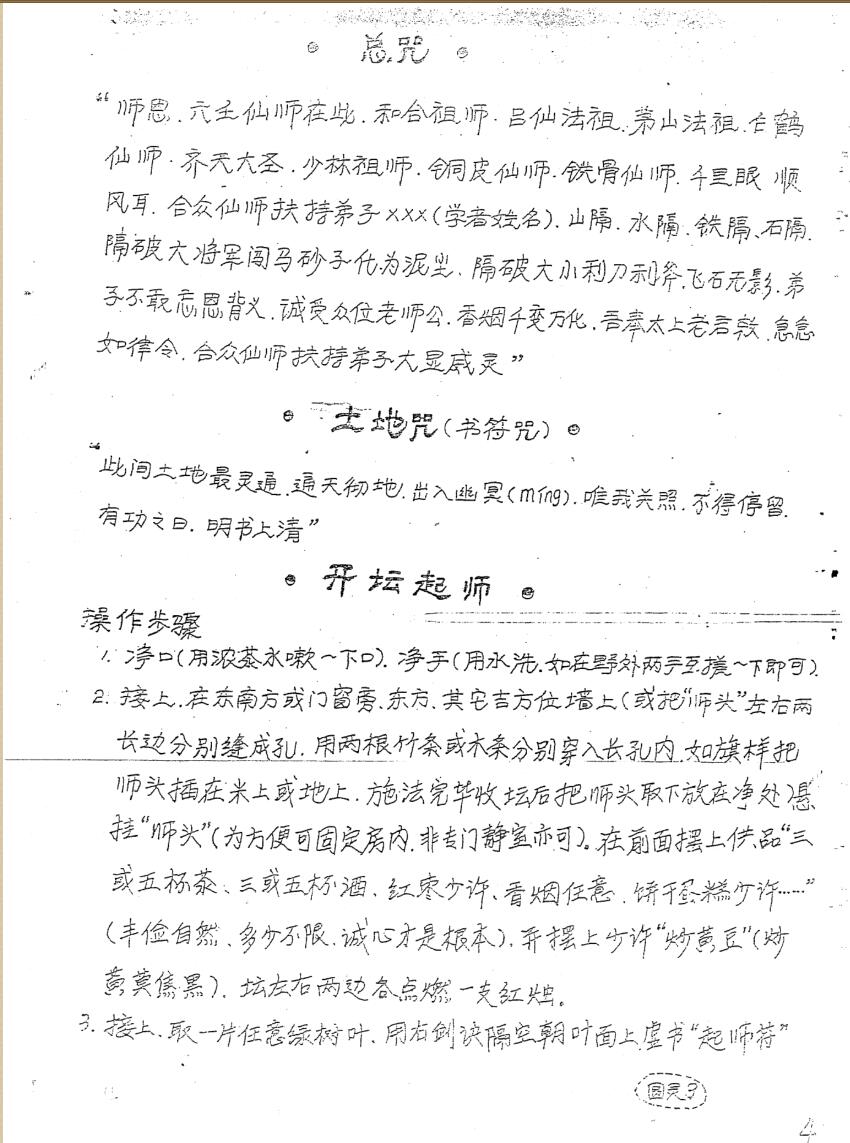 总咒
“师恩、六壬仙师在此、和合祖师、吕仙法祖、茅山法祖、白鹤
仙师、齐天大圣、少林祖师、铜皮仙师、铁骨仙师、千里眼 顺
风耳、合众仙师扶持弟子×××(学者姓名)、山隔、水隔、铁隔、石隔、
隔破大将军闯马砂子化为泥尘、隔破大小利刀利斧、飞石无影、弟
子不敢忘恩背义、诚受众位老师公、香烟千变万化、吾奉太上老君敕、急急
如律令、合众仙师扶持弟子大显威灵”
土地咒(书符咒)
“此间土地最灵通、通天彻地、出入幽冥(míng)、唯我关照、不得停留、
有功之日、明书上清”
开坛起师
操作步骤
1. 净口(用浓茶水嗽~下口)、净手(用水洗、如在野外两手互搓~下即可)
2. 接上、在东南方或门窗旁、东方、其它吉方位墙上(或把“师头”左右两
长边分别缝成孔、用两根竹条或木条分别穿入长孔内、如旗样把
师头插在米上或地上、施法完毕收坛后把师头取下放在净处)悬
挂“师头”(为方便可固定房内、非专门静室亦可)。在前面摆上供品“三
或五杯茶、三或五杯酒、红枣少许、香烟任意、饼干蛋糕少许……”
(丰俭自然、多少不限、诚心才是根本)、并摆上少许“炒黄豆”(炒
黄莫焦黑)、坛左右两边各点燃一支红烛。
3. 接上、取一片任意绿树叶、用右剑诀隔空朝叶面上虚书“起师符”
圆灵3
4